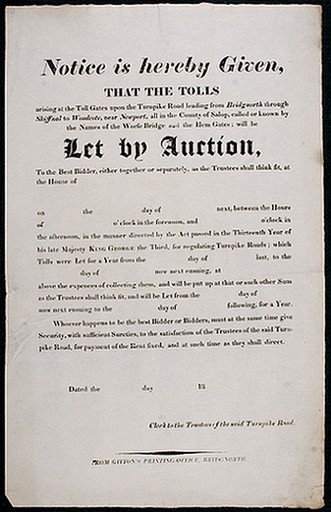 Notice is hereby Given,
THAT THE TOLLS
arising at the Toll Gates upon the Turnpike Road leading from Bridgnorth through
Shiffnal to Woodcote, near Newport, all in the County of Salop, called or known by
the Names of the Weefe Bridge and the Hem Gates; will be
Let by Auction,
To the Best Bidder, either together or separately, as the Trustees shall think fit, at
the House of
on the day of next, between the Hours
of o'clock in the forenoon, and o'clock in
the afternoon, in the manner directed by the Act passed in the Thirteenth Year of
his late Majesty KING GEORGE the Third, for regulating Turnpike Roads; which
Tolls were Let for a Year from the day of last, to the
day of now next ensuing, at
above the expences of collecting them, and will be put up at that or such other Sum
as the Trustees shall think fit, and will be Let from the day of
now next ensuing to the day of following, for a Year.
Whoever happens to be the best Bidder or Bidders, must at the same time give
Security, with sufficient Sureties, to the satisfaction of the Trustees of the said Turn-
pike Road, for payment of the Rent fixed, and at such time as they shall direct.
Dated the day 18
Clerk to the Trustees of the said Turnpike Road.
FROM GITTON'S PRINTING-OFFICE, BRIDGNORTH